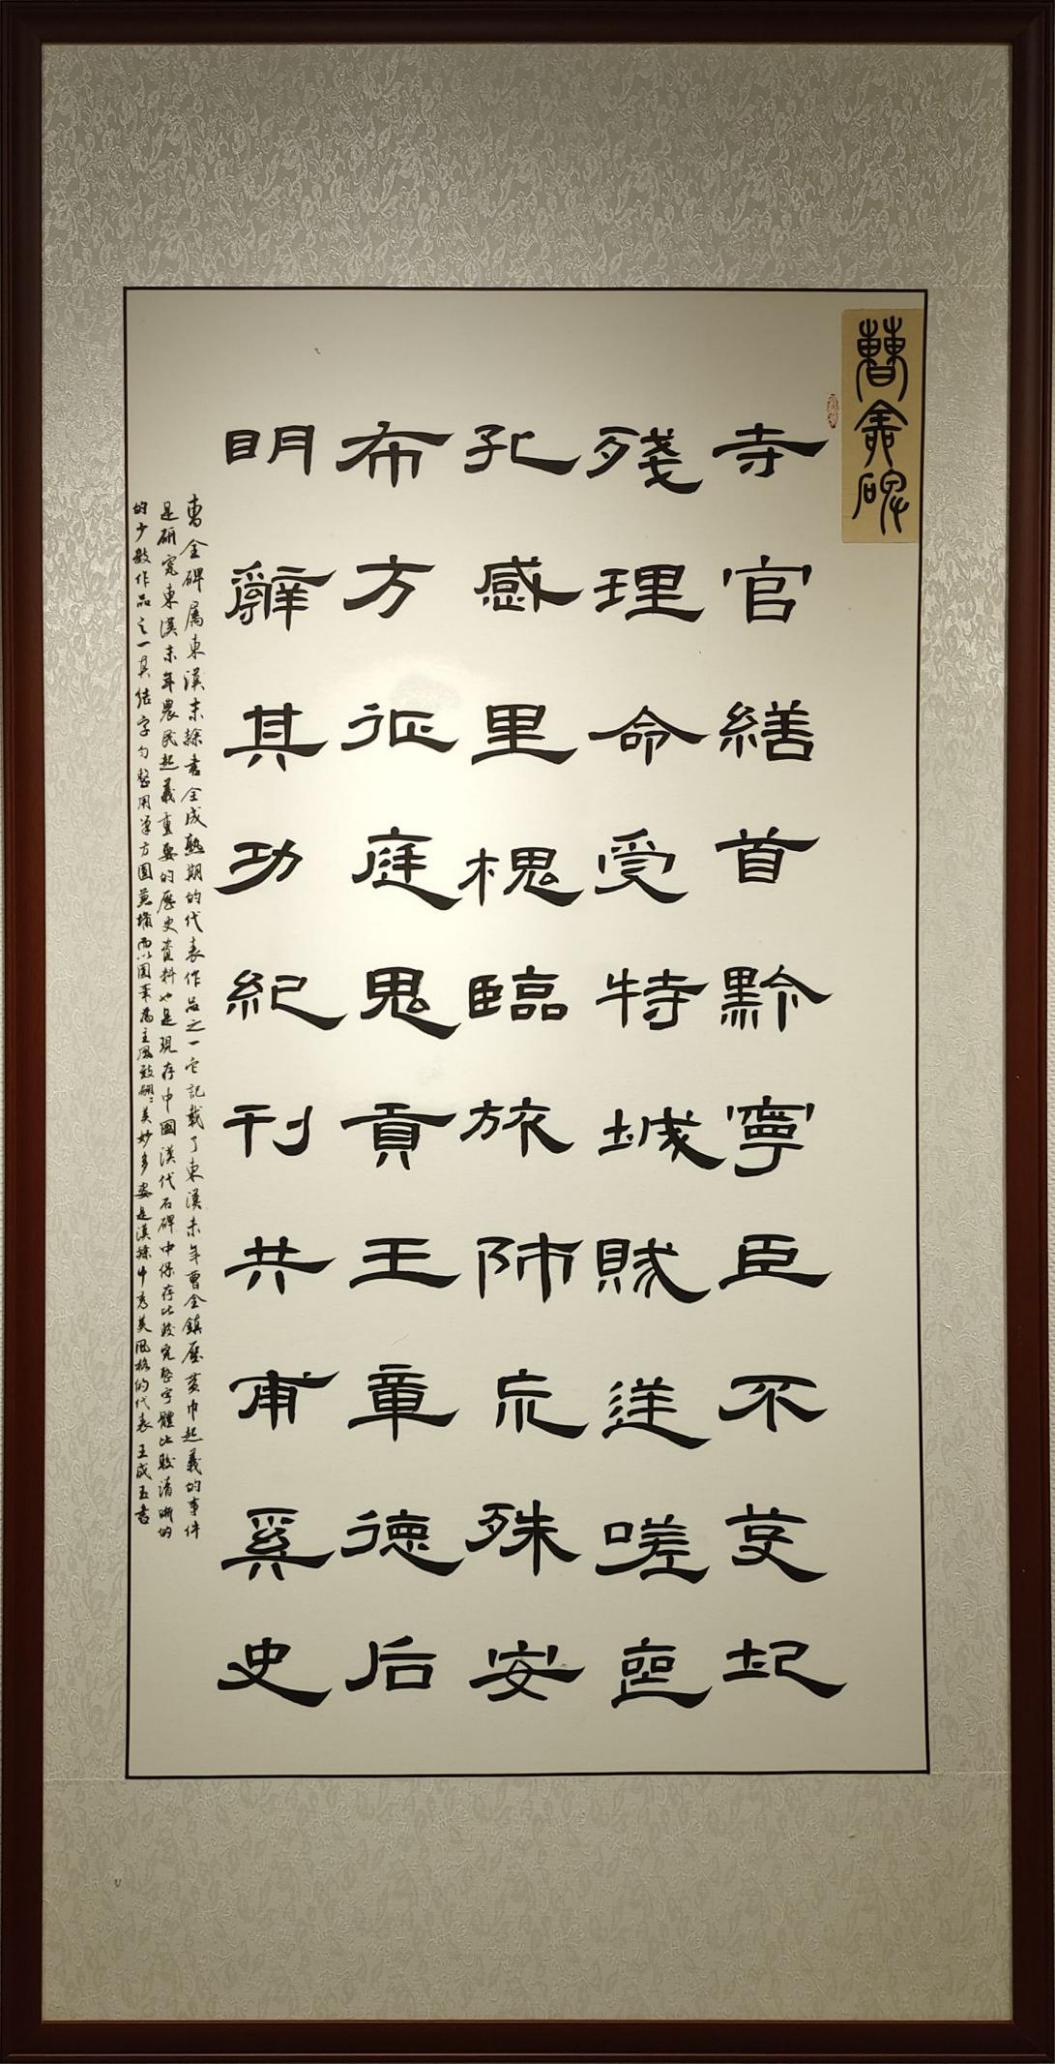 曹全碑
寺官繕首黔寧臣不芟圮
殘理命受特城賊逆嗟喪
孔感里槐臨旅師巟殊安
布方征庭鬼貢王章德后
明辭其功紀刊共甫奚史
曹全碑屬東漢末隸書全成熟期的代表作品之一它記載了東漢末年曹全鎮壓黃巾起義的事件
是研究東漢末年農民起義重要的歷史資料也是現存中國漢代石碑中保存比較完整字體比較清晰的
的少數作品之一其結字勻整用筆方圓兼備而以圓筆為主風致翩翩美妙多姿是漢隸中秀美風格的代表王成玉書